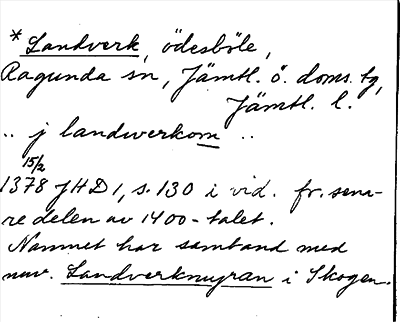 *Landverk, ödesböle,
Ragunda sn, Jämtl. ö. doms. tg,
Jämtl. l.
.. j landwerkom ..
15/2
1378 JHD 1, s. 130 i vid. fr. sena-
re delen av 1400-talet.
Namnet har samband med
nuv. Landverkmyran i Skogen.